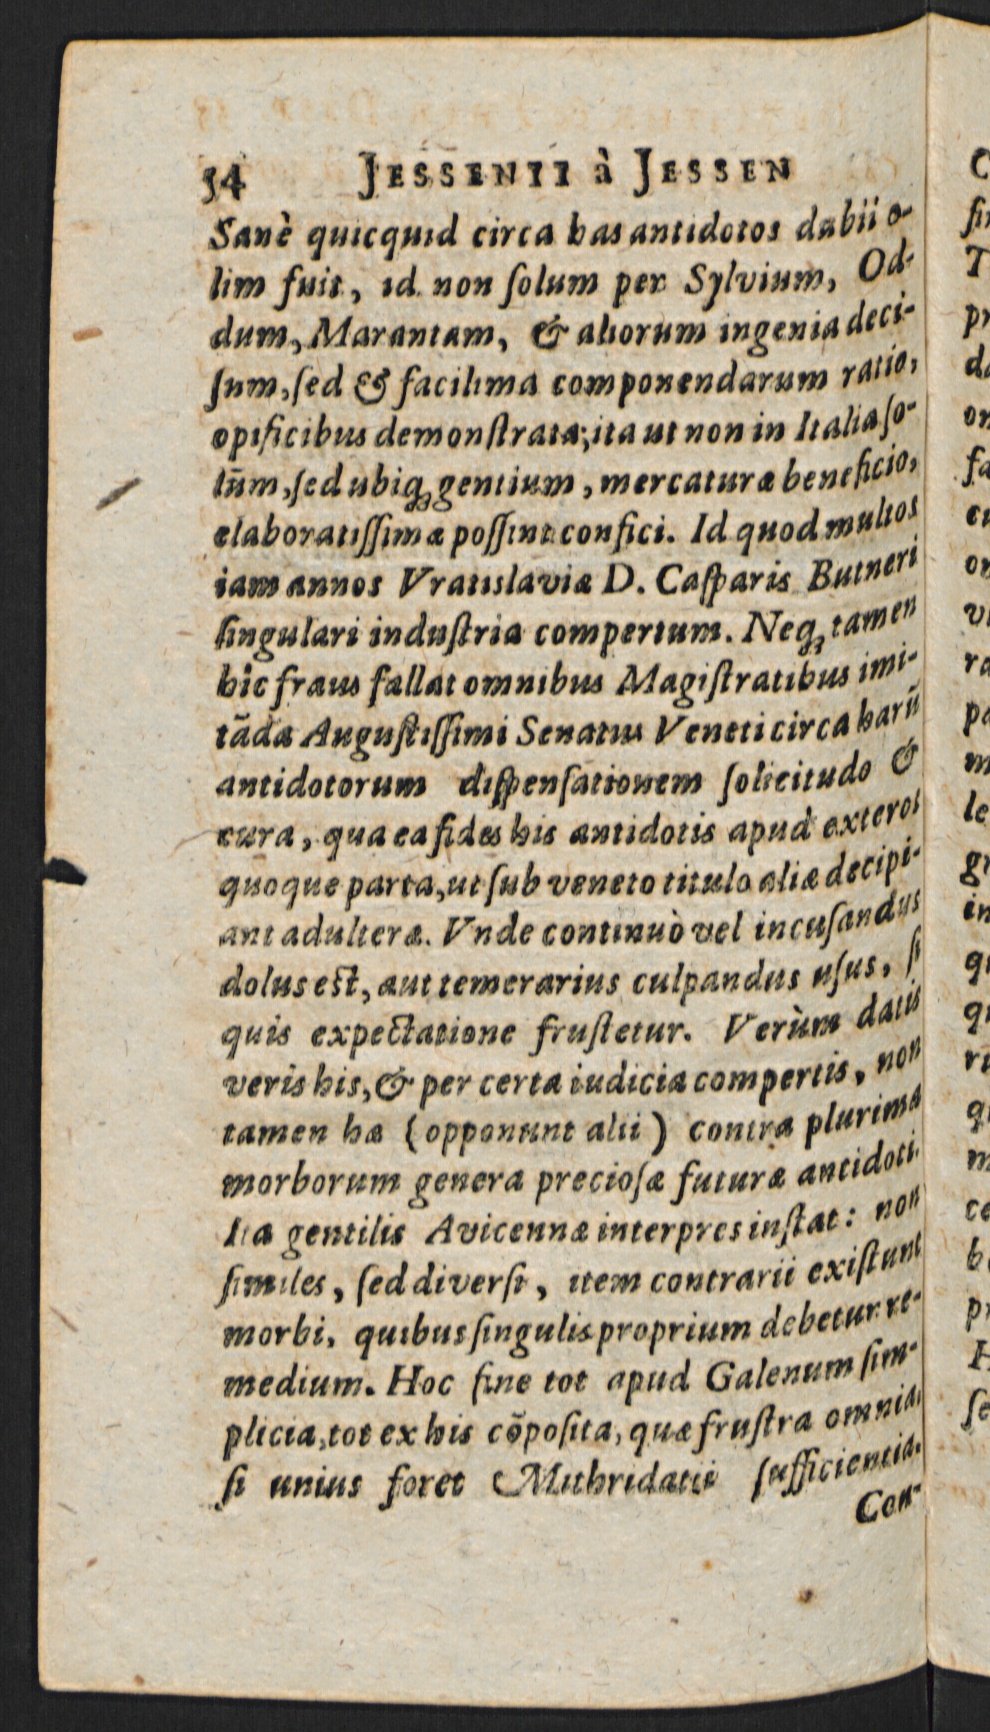 54 JESSENII à JESSEN
Sanè quicquid circa has antidotos dubii o-
lim fuit, id non ſolum per Sylvium, Od-
dum, Marantam, & aliorum ingenia deci-
ſum, ſed & facilima componendarum ratio,
opificibus demonſtrata; ita ut non in Italia ſo-
lũm, ſed ubiq; gentium, mercaturæ beneficio,
elaboratiſſimæ poſſint confici. Id quod multos
iam annos Vratislaviæ D. Caſparis Butneri
ſingulari induſtria compertum. Neq; tamen
hîc fraus fallat omnibus Magiſtratibus imi-
tãda Auguſtiſſimi Senatus Veneti circa harũ
antidotorum diſpenſationem ſolicitudo &
cura, qua ea fides his antidotis apud exteros
quoque parta, ut ſub veneto titulo aliæ decipi-
ant adulteræ. Vnde continuò vel incuſandus
dolus eſt, aut temerarius culpandus uſus, ſi
quis expectatione fruſtetur. Verùm datis
veris his, & per certa iudicia compertis, non
tamen hæ (opponunt alii) contra plurima
morborum genera precioſæ futuræ antidoti.
Ita gentilis Avicennæ interpres inſtat: non
ſimiles, ſed diverſi, item contrarii exiſtunt
morbi, quibus ſingulis proprium debetur re-
medium. Hoc ſine tot apud Galenum ſim-
plicia, tot ex his cõpoſita, quæ fruſtra omnia,
ſi unius foret Mithridatii ſufficientia.
Con-